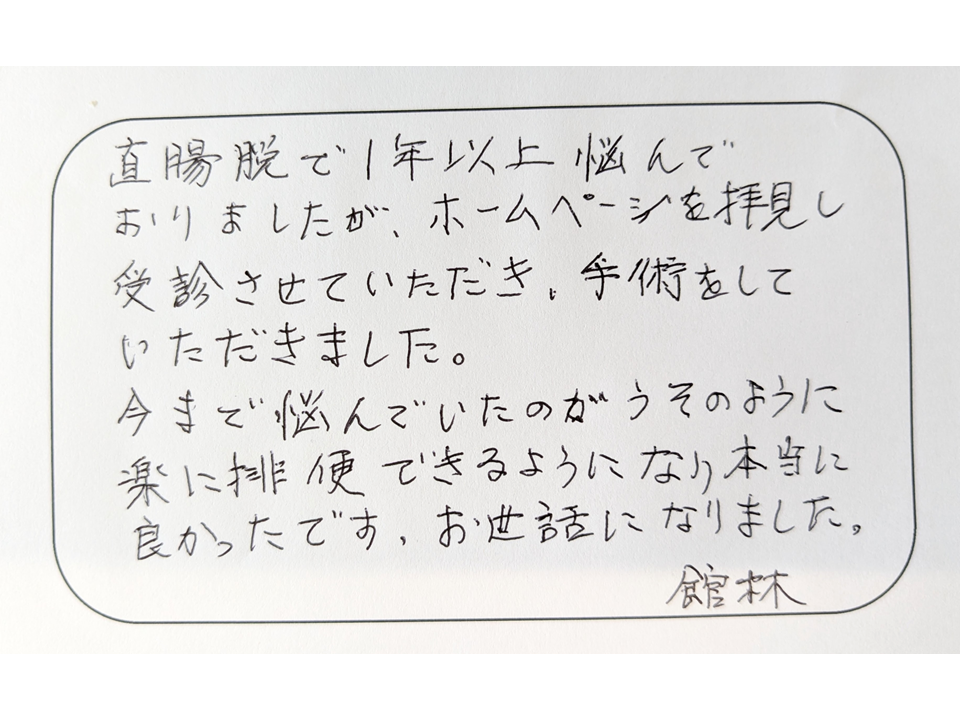 直腸脱で1年以上悩んで
おりましたが、ホームページを拝見し
受診させていただき、手術をして
いただきました。
今まで悩んでいたのがうそのように
楽に排便できるようになり本当に
良かったです。お世話になりました。
館林